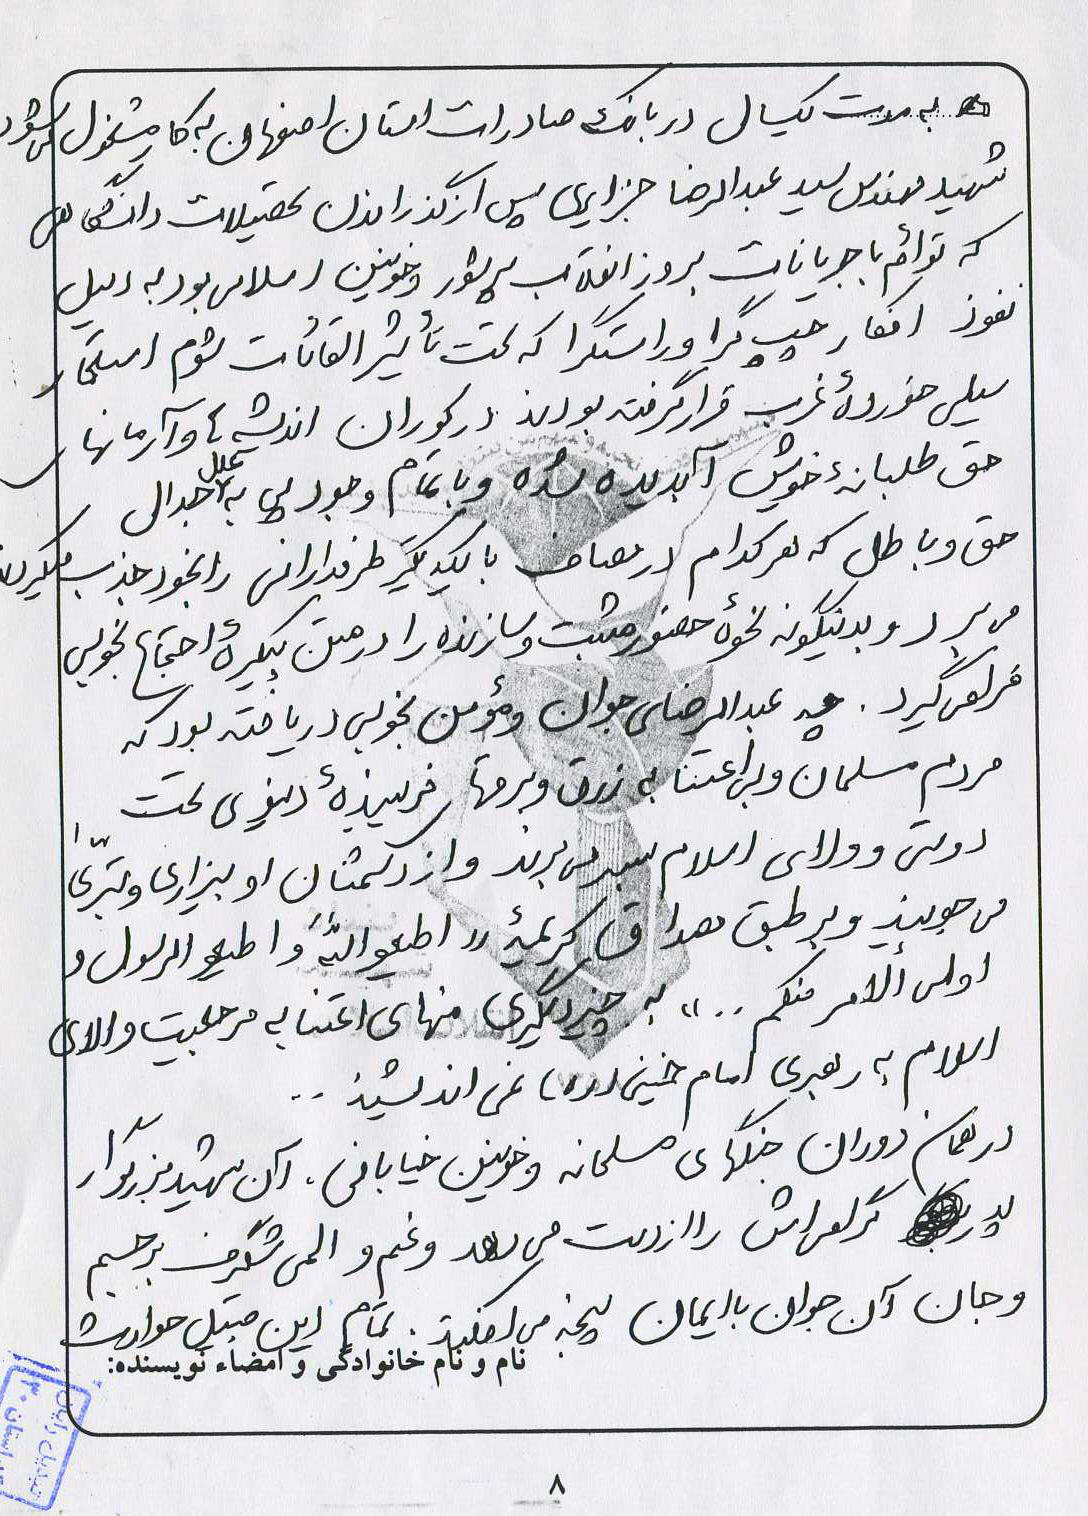 به مدت یکسال در بانک صادرات استان اصفهان به کار مشغول می شود
شهید مهندس سید عبدالرضا جزایری پس از گذراندن تحصیلات دانشگاهی
که توأم با جریانات بروز انقلاب پرشور و خونین اسلامی بود به دلیل
نفوذ افکار چپ گرا و راستگرا که تحت تأثیر القائات شوم استعمار
سیلی خوردهٔ غرب قرار گرفته بودند در کوران اندیشه ها و آرمانهای
حق طلبانهٔ خویش آبدیده شده و با تمام وجود پی به علل جدال
حق و باطل که هر کدام در مصاف با یکدیگر طرفدارانی را بخود جذب میکردند
می برد و بدینگونه نحوهٔ حضور مثبت و سازنده را در متن پیکرهٔ اجتماع بخوبی
فرا می گیرد. چه عبدالرضای جوان و مؤمن بخوبی دریافته بود که
مردم مسلمان و بی اعتنا به زرق و برقهای فریبندهٔ دنیوی تحت
دوستی و ولای اسلام بسر می برند و از دشمنان او بیزاری و تبرّی
می جویند و بر طبق مصداق کریمهٔ «اطیعو اللّه و اطیعو الرسول و
اولی الامر منکم ..» به چیز دیگری منهای اعتنا به مرجعیت والای
اسلام به رهبری امام خمینی نمی اندیشند ..
در همان دوران جنگهای مسلحانه و خونین خیابانی، آن شهید بزرگوار
پدر گرامی اش را از دست می دهد و غم و المی شگرف بر جسم
و جان آن جوان با ایمان پنجه می افکند. تمام این قبیل حوادث
نام و نام خانوادگی و امضاء نویسنده:
۸